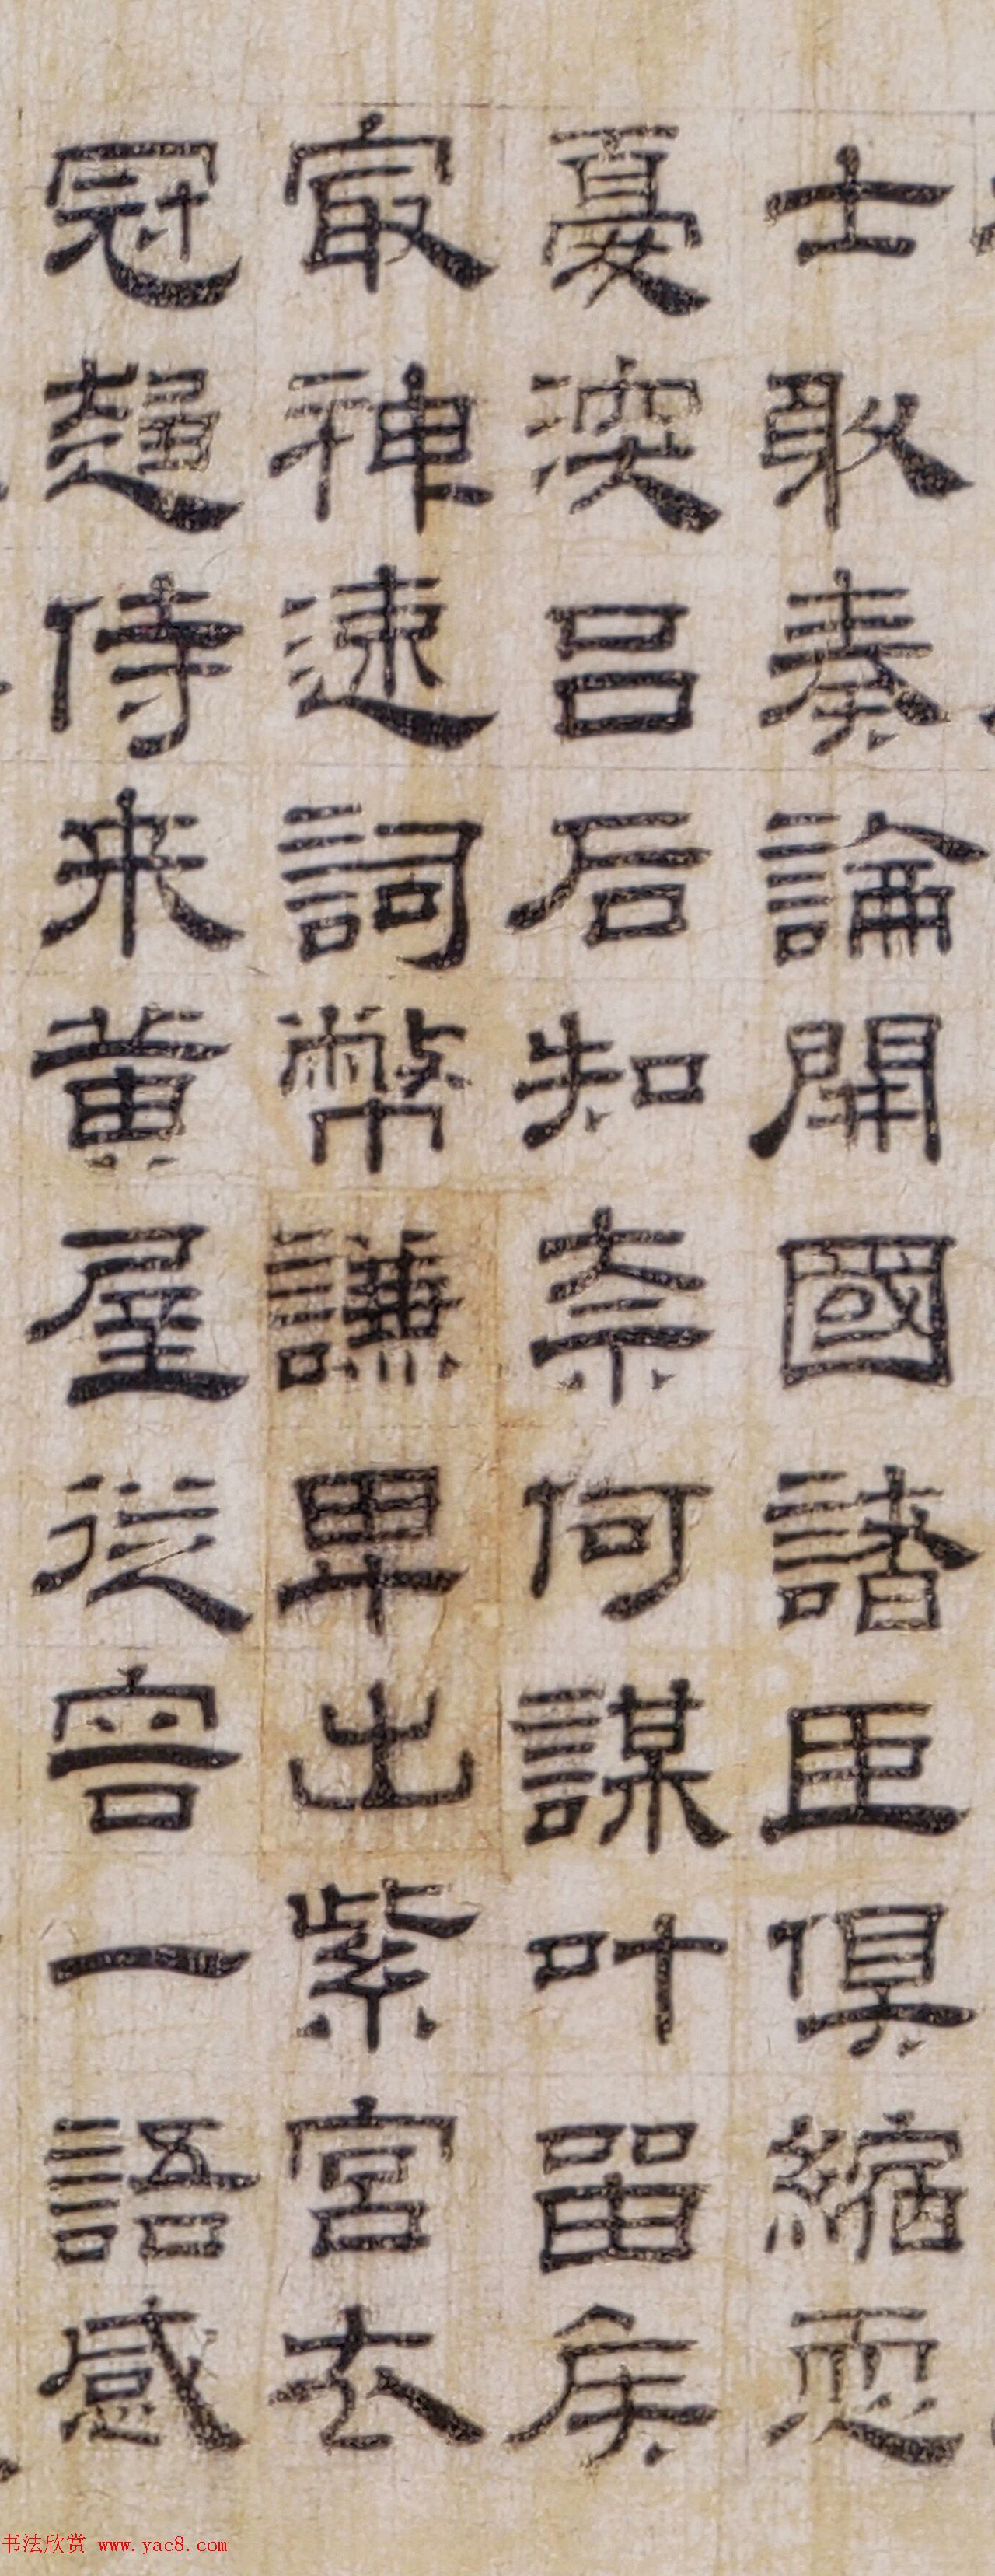 士敢奏論開國諸臣俱縮恧
憂深呂后知柰何謀叶留矦
㝡神速詞幣謙卑出紫宮去
冠趍侍来黄屋從容一語感
书法欣赏 www.yac8.com